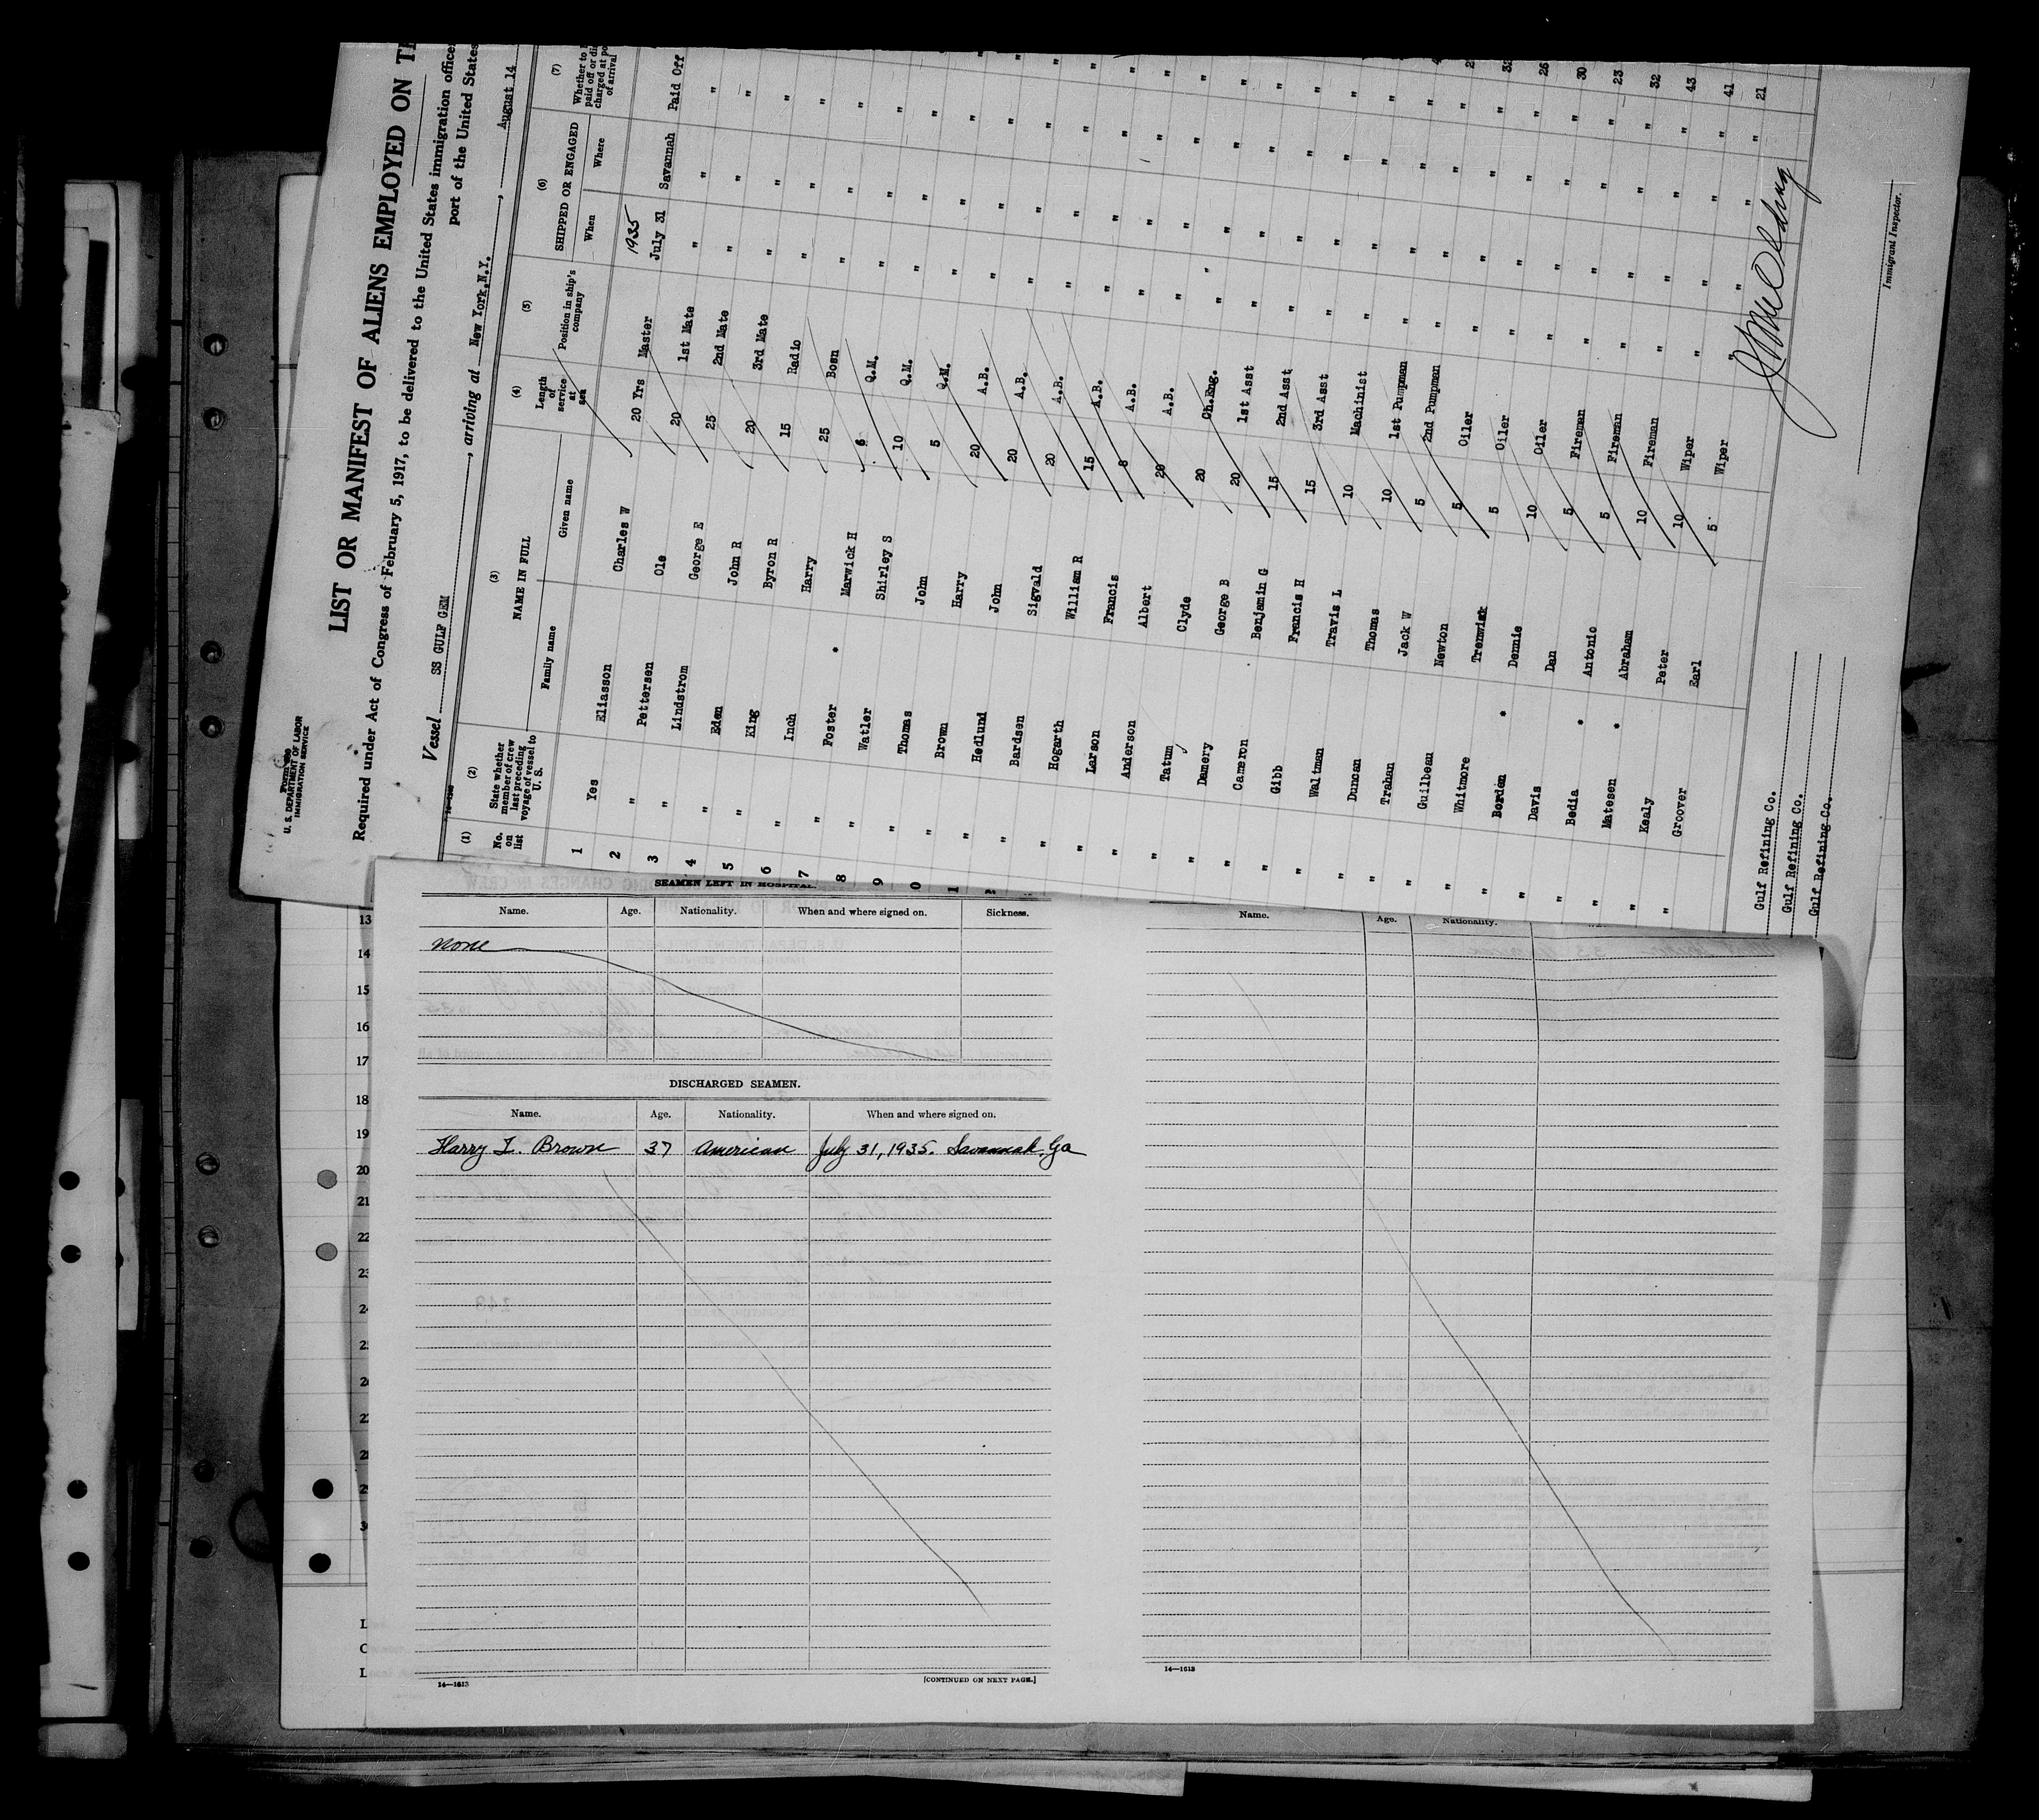 U. S. DEPARTMENT OF LABOR
IMMIGRATION SERVICE
LIST OR MANIFEST OF ALIENS EMPLOYED ON
Required under Act of Congress of February 5, 1917, to be delivered to the United States immigration
port of the United States
Vessel SS GULF GEM, arriving at New York.N.Y., August 14
(1) (2) (3) (4) (5) (6) (7)
No. on list State whether member of crew last preceding voyage of vessel to U. S. NAME IN FULL Length of service at sea Position in ship's company SHIPPED OR ENGAGED Whether to paid off or charged at of arrival
Family name Given name When Where
1935
1 Yes Eliasson Charles W 20 Yrs Master July 31 Savannah Paid Off
2 " Pettersen Ole 20 1st Mate " " "
3 " Lindstrom George E 25 2nd Mate " " "
4 " Eden John R 20 3rd Mate " " "
5 " King Byron R 15 Radio " " "
6 " Inch Harry 25 Bosn " " "
7 " Foster * Marwick H 6 Q.M. " " "
8 " Watler Shirley S 10 Q.M. " " "
9 " Thomas John 5 Q.M. " " "
0 " Brown Harry 20 A.B. " " "
1 " Hedlund John 20 A.B. " " "
" Bardsen Sigvald 20 A.B. " " "
" Hogarth William R 15 A.B. " " "
" Larson Francis 8 A.B. " " "
" Anderson Albert 20 A.B. " " "
" Tatum Clyde 20 Ch.Eng. " " "
" Damery George B 20 1st Asst " " "
" Cameron Benjamin G 15 2nd Asst " " "
" Gibb Francis H 15 3rd Asst " " "
" Waltman Travis L 10 Machinist " " "
" Duncan Thomas 10 1st Pumpman " " "
" Trahan Jack W 5 2nd Pumpman " " "
" Guilbeau Newton 5 Oiler " " "
" Whitmore Trenwick 5 Oiler " " "
" Borden * Dennie 10 Oiler " " " 26
" Davis Dan 5 Fireman " " " 30
" Bedia * Antonio 5 Fireman " " " 23
" Matesen * Abraham 10 Fireman " " " 32
" Kealy Peter 10 Wiper " " " 43
" Groover Earl 5 Wiper " " " 41
21
Gulf Refining Co.
Gulf Refining Co.
Gulf Refining Co.
Immigrant Inspector.
SEAMEN LEFT IN HOSPITAL.
Name. Age. Nationality. When and where signed on. Sickness.
None
DISCHARGED SEAMEN.
Name. Age. Nationality. When and where signed on.
Harry L. Brown 37 American July 31, 1935. Savannah, Ga
14—1613
[CONTINUED ON NEXT PAGE.]
Name. Age. Nationality.
14—1613
13
14
15
16
17
18
19
20
21
22